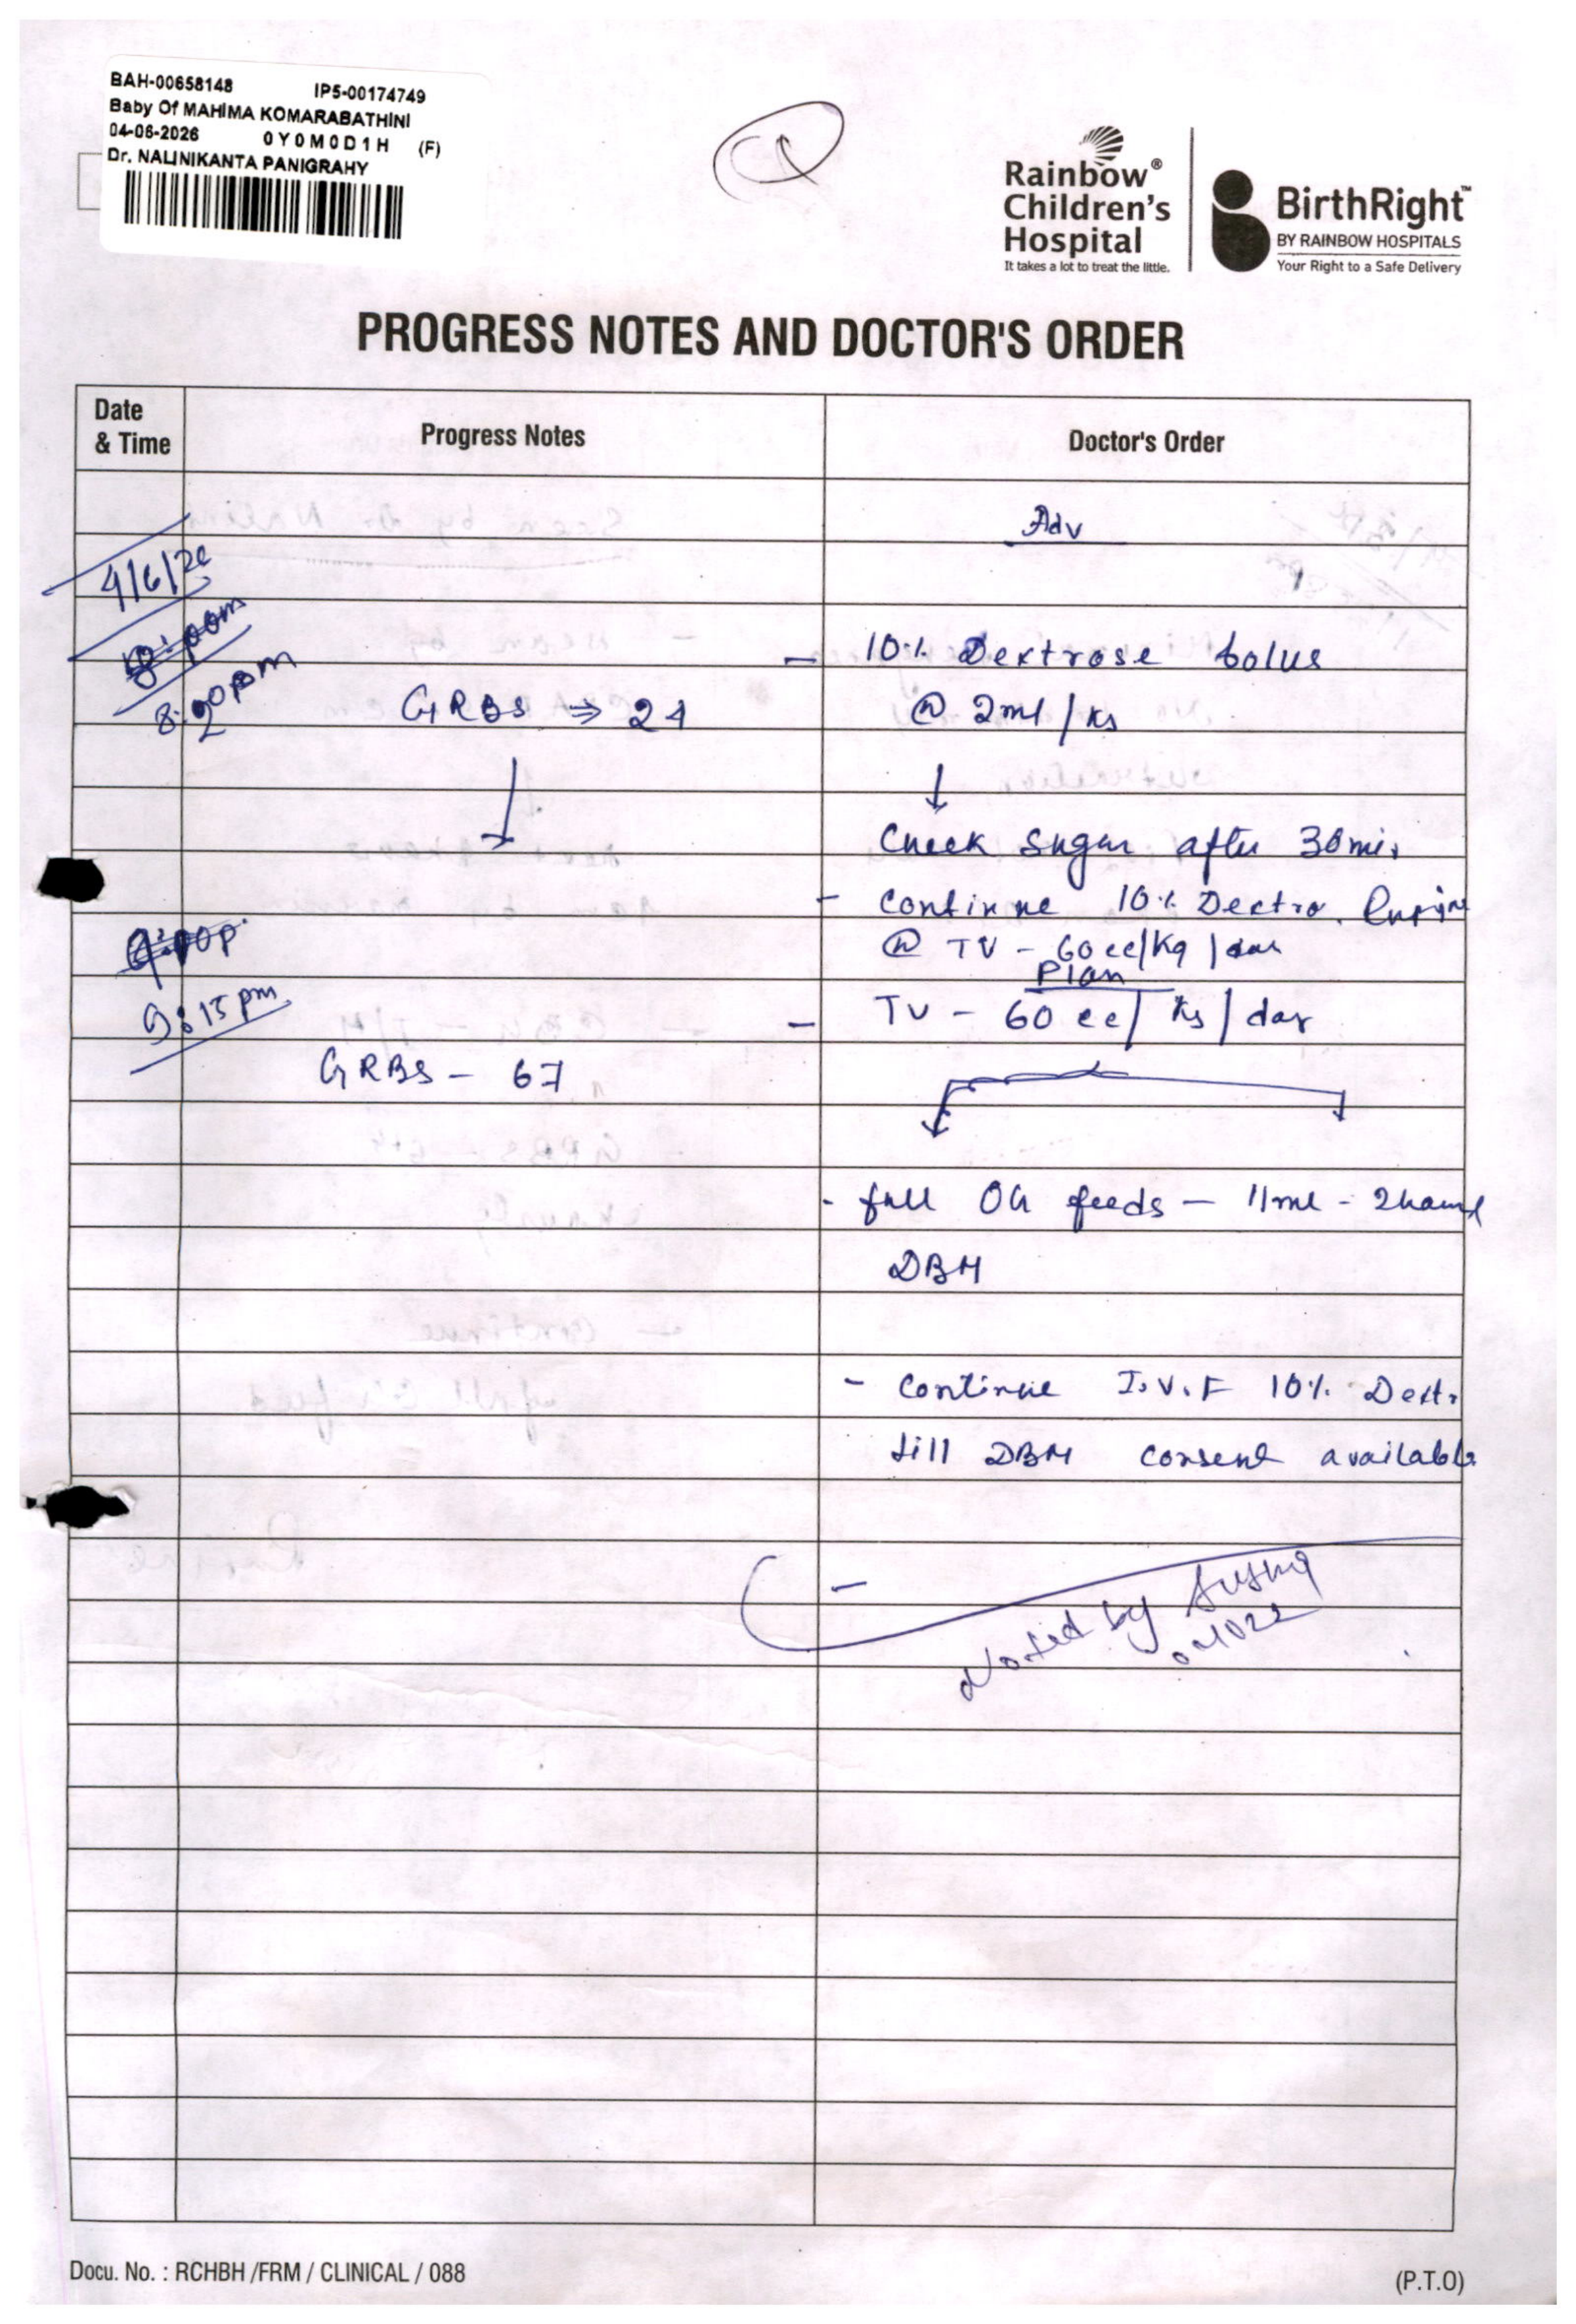 BAH-00658148 IP5-00174749
Baby Of MAHIMA KOMARABATHINI
04-06-2026 0Y0M0D1H (F)
Dr. NALINIKANTA PANIGRAHY
Rainbow®
Children's
Hospital
It takes a lot to treat the little.
BirthRight™
BY RAINBOW HOSPITALS
Your Right to a Safe Delivery
PROGRESS NOTES AND DOCTOR'S ORDER
Date
& Time
Progress Notes
Doctor's Order
Adv
4/6/26
8:20pm
- 10% Dextrose bolus
GRBS ⇒ 24
@ 2ml/kg
↓
Check sugar after 30 min
- Continue 10% Dextro.
@ TV - 60cc/Kg/day
Plan
9:15pm
- TV - 60 cc/kg/day
GRBS - 67
- full OG feeds - 11ml - 2hourl
DBM
- Continue I.V.F 10% Dext.
till DBM consent available
-
Noted by
Docu. No. : RCHBH /FRM / CLINICAL / 088
(P.T.O)